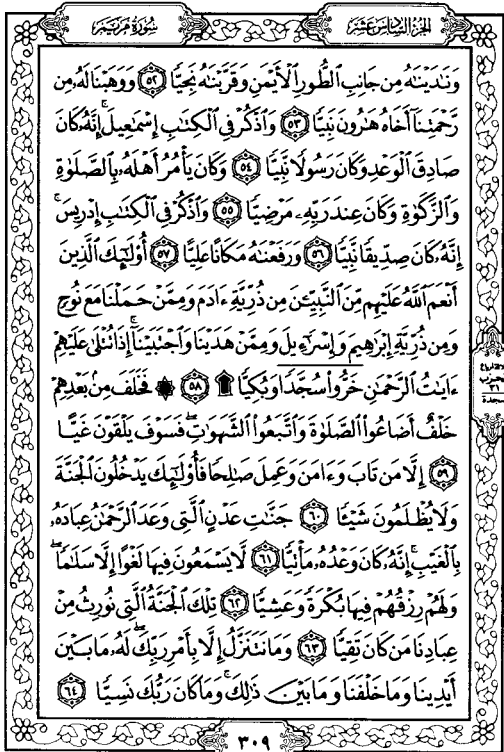 سُورَةُ مَرْيَمَ
الجُزْءُ السَّادِسَ عَشَرَ
وَنَٰدَيْنَٰهُ مِن جَانِبِ ٱلطُّورِ ٱلْأَيْمَنِ وَقَرَّبْنَٰهُ نَجِيًّا ٥٢ وَوَهَبْنَا لَهُۥ مِن
رَّحْمَتِنَآ أَخَاهُ هَٰرُونَ نَبِيًّا ٥٣ وَٱذْكُرْ فِى ٱلْكِتَٰبِ إِسْمَٰعِيلَ ۚ إِنَّهُۥ كَانَ
صَادِقَ ٱلْوَعْدِ وَكَانَ رَسُولًا نَّبِيًّا ٥٤ وَكَانَ يَأْمُرُ أَهْلَهُۥ بِٱلصَّلَوٰةِ
وَٱلزَّكَوٰةِ وَكَانَ عِندَ رَبِّهِۦ مَرْضِيًّا ٥٥ وَٱذْكُرْ فِى ٱلْكِتَٰبِ إِدْرِيسَ ۚ
إِنَّهُۥ كَانَ صِدِّيقًا نَّبِيًّا ٥٦ وَرَفَعْنَٰهُ مَكَانًا عَلِيًّا ٥٧ أُو۟لَٰٓئِكَ ٱلَّذِينَ
أَنْعَمَ ٱللَّهُ عَلَيْهِم مِّنَ ٱلنَّبِيِّـۧنَ مِن ذُرِّيَّةِ ءَادَمَ وَمِمَّنْ حَمَلْنَا مَعَ نُوحٍ
وَمِن ذُرِّيَّةِ إِبْرَٰهِيمَ وَإِسْرَٰٓءِيلَ وَمِمَّنْ هَدَيْنَا وَٱجْتَبَيْنَآ ۚ إِذَا تُتْلَىٰ عَلَيْهِمْ
ءَايَٰتُ ٱلرَّحْمَٰنِ خَرُّوا۟ سُجَّدًا وَبُكِيًّا ۩ ٥٨ ۞ فَخَلَفَ مِنۢ بَعْدِهِمْ
خَلْفٌ أَضَاعُوا۟ ٱلصَّلَوٰةَ وَٱتَّبَعُوا۟ ٱلشَّهَوَٰتِ ۖ فَسَوْفَ يَلْقَوْنَ غَيًّا
٥٩ إِلَّا مَن تَابَ وَءَامَنَ وَعَمِلَ صَٰلِحًا فَأُو۟لَٰٓئِكَ يَدْخُلُونَ ٱلْجَنَّةَ
وَلَا يُظْلَمُونَ شَيْـًٔا ٦٠ جَنَّٰتِ عَدْنٍ ٱلَّتِى وَعَدَ ٱلرَّحْمَٰنُ عِبَادَهُۥ
بِٱلْغَيْبِ ۚ إِنَّهُۥ كَانَ وَعْدُهُۥ مَأْتِيًّا ٦١ لَّا يَسْمَعُونَ فِيهَا لَغْوًا إِلَّا سَلَٰمًا ۖ
وَلَهُمْ رِزْقُهُمْ فِيهَا بُكْرَةً وَعَشِيًّا ٦٢ تِلْكَ ٱلْجَنَّةُ ٱلَّتِى نُورِثُ مِنْ
عِبَادِنَا مَن كَانَ تَقِيًّا ٦٣ وَمَا نَتَنَزَّلُ إِلَّا بِأَمْرِ رَبِّكَ ۖ لَهُۥ مَا بَيْنَ
أَيْدِينَا وَمَا خَلْفَنَا وَمَا بَيْنَ ذَٰلِكَ ۚ وَمَا كَانَ رَبُّكَ نَسِيًّا ٦٤
٣٠٩